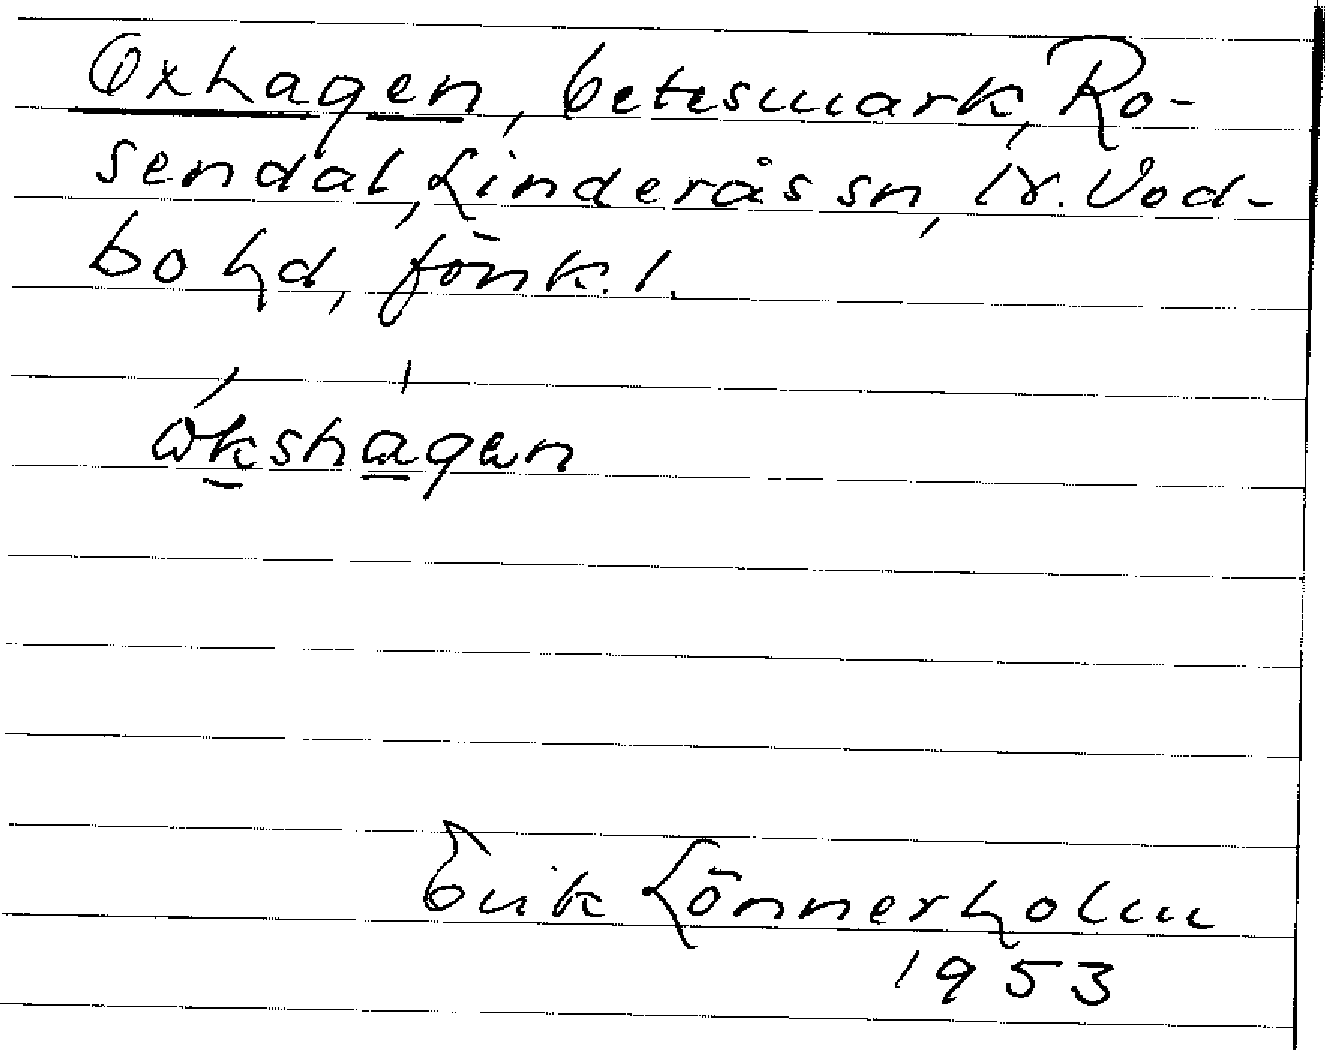 Oxhagen, betesmark, Ro-
sendal, Linderås sn, N. Ved-
bo hd, Jönk. l.
ѡ́kshàgɐn
Erik Lönnerholm
1953